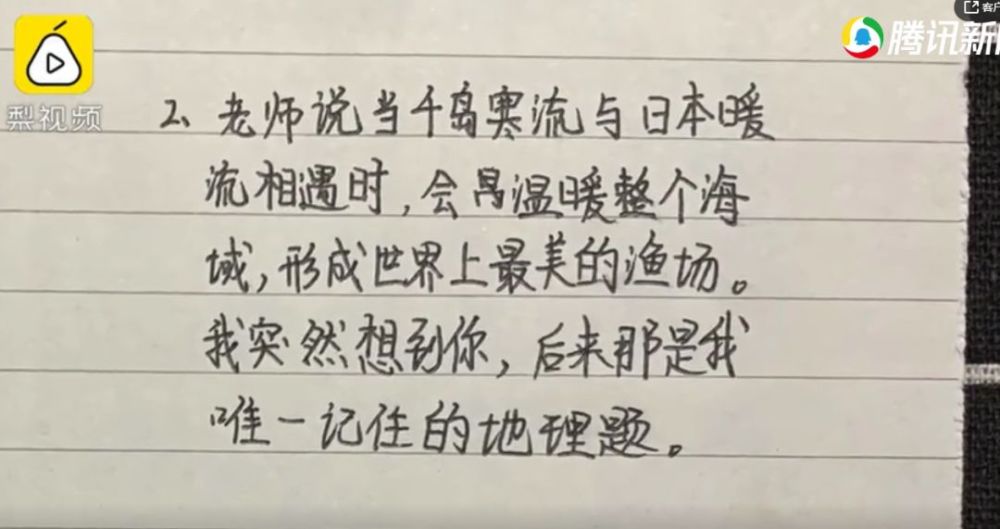 客户
梨视频
腾讯新闻
2、老师说当千岛寒流与日本暖
流相遇时,会温暖整个海
域,形成世界上最美的渔场。
我突然想到你,后来那是我
唯一记住的地理题。